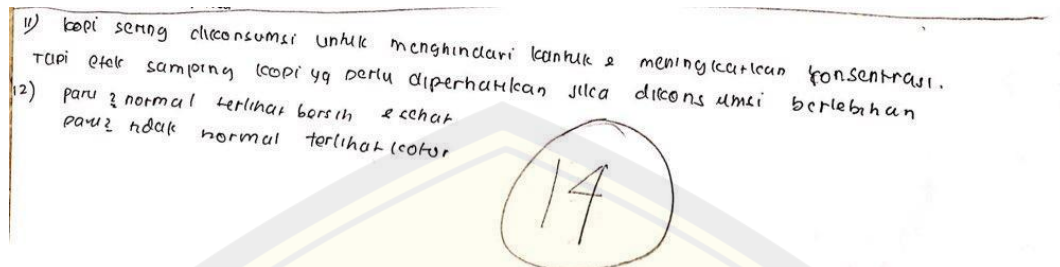 11) kopi sering dikonsumsi untuk menghindari kantuk & meningkatkan konsentrasi.
Tapi efek samping kopi yg perlu diperhatikan jika dikonsumsi berlebihan
12) paru2 normal terlihat bersih & sehat
paru2 tidak normal terlihat kotor
14